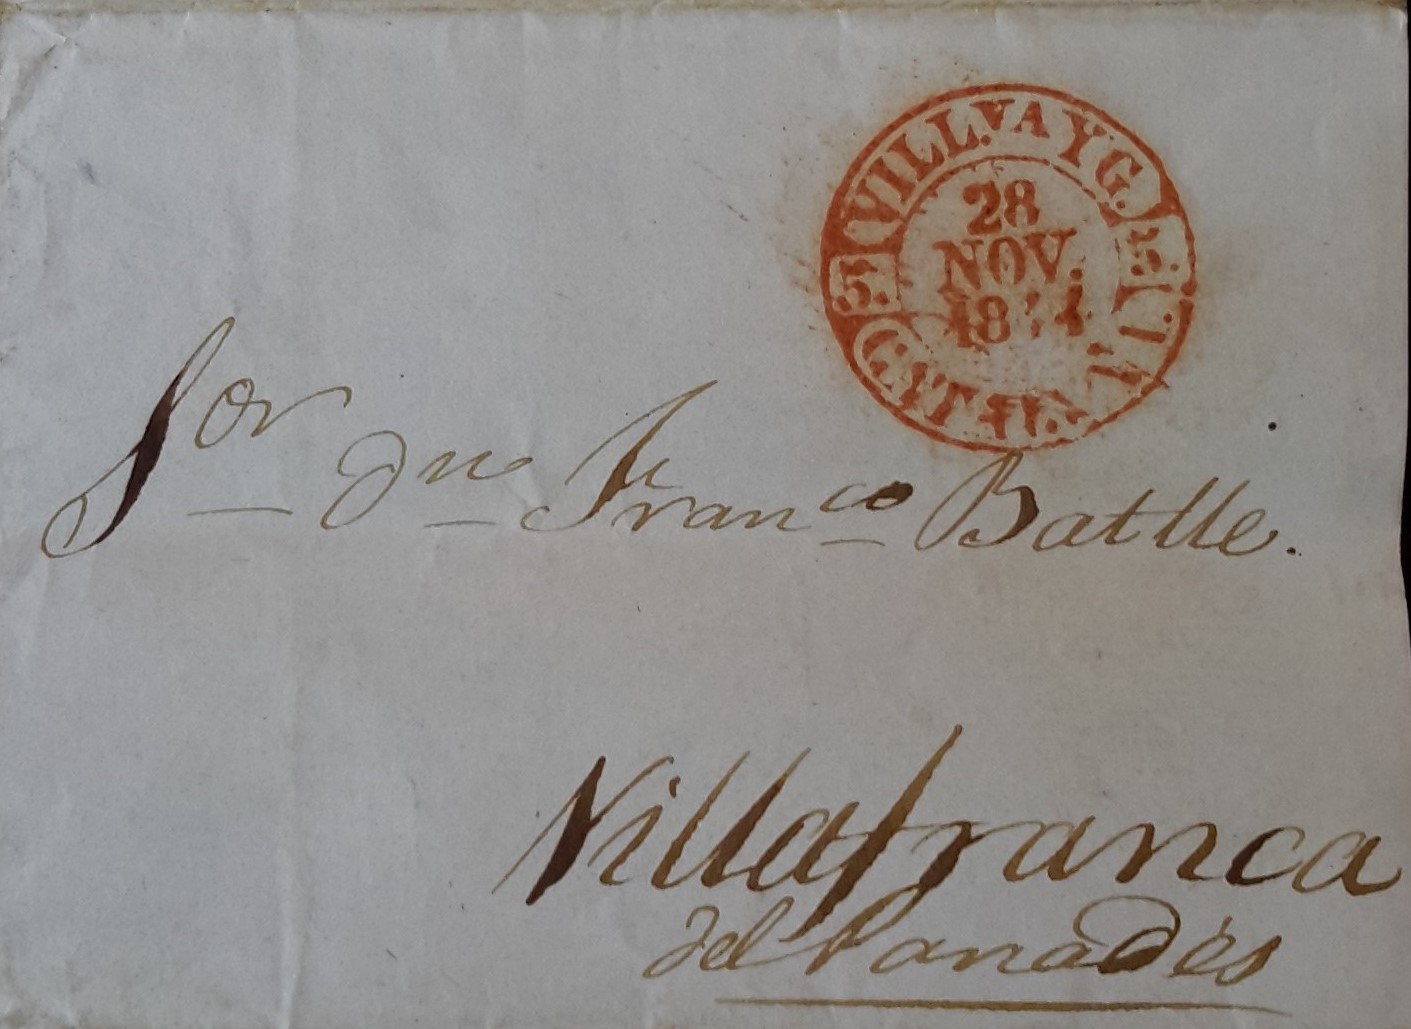 VILL.VA Y G.
5.
28
NOV.
5.
CATAL
Sor dn Franco Batlle.
Villafranca
del Panadés